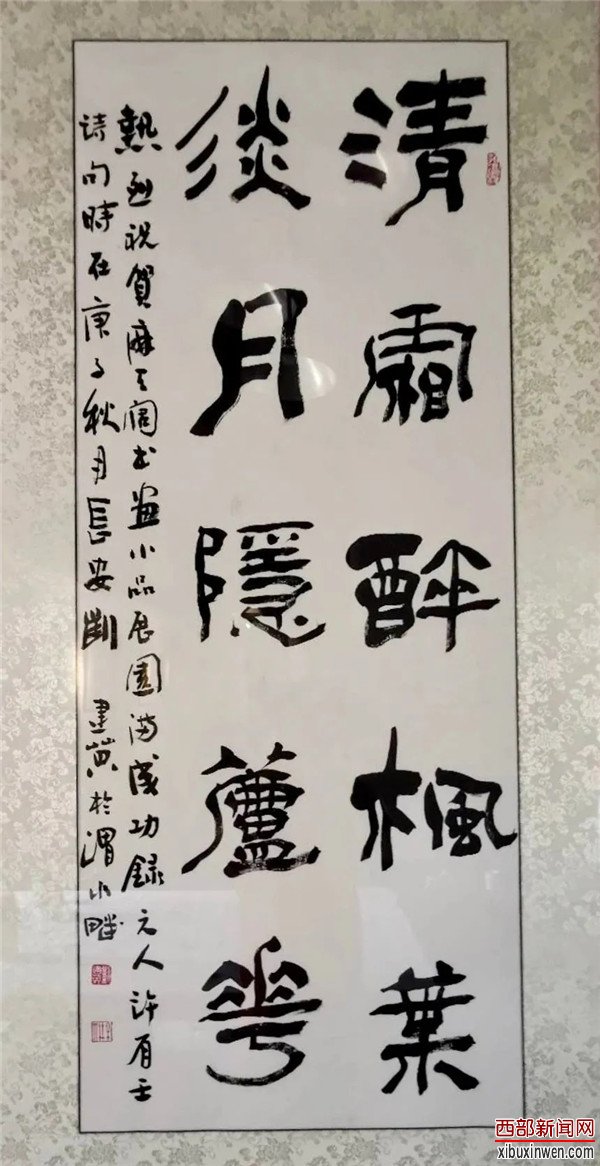 清霜醉楓葉
淡月隱蘆花
熱烈祝賀麻天闊书画小品展圆满成功錄元人許有壬
诗句時在庚子秋月長安劉建黄於渭水畔
西部新闻网
xibuxinwen.com